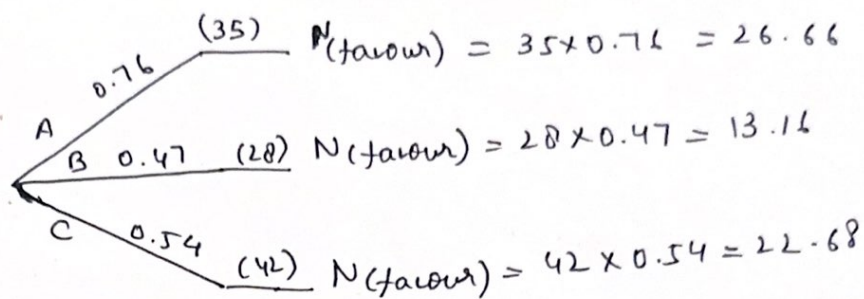 (35) N(favour) = 35×0.76 = 26.66
0.76
A
B 0.47 (28) N(favour) = 28×0.47 = 13.16
C 0.54
(42) N(favour) = 42×0.54 = 22.68